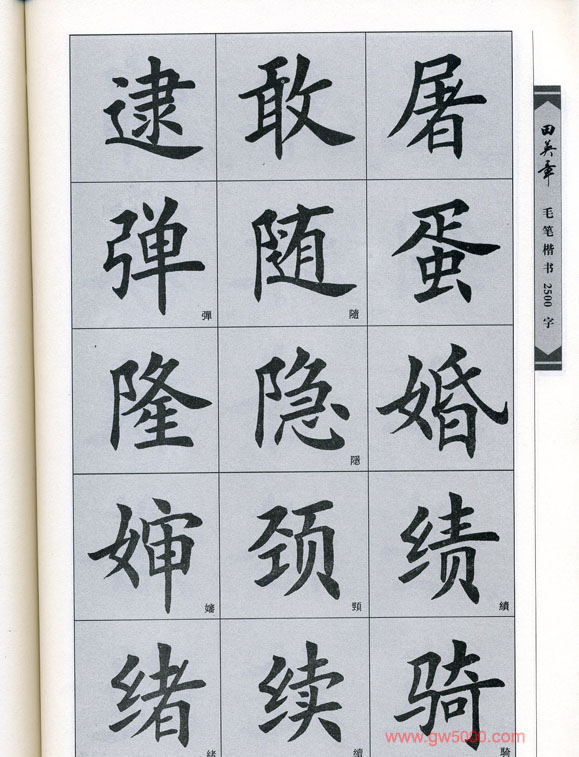 逮 敢 屠
弹 彈 随 隨 蛋
隆 隐 隱 婚
婶 嬸 颈 頸 绩 績
绪 緒 续 續 骑 騎
田英章 毛笔楷书 2500 字
www.gw5000.com